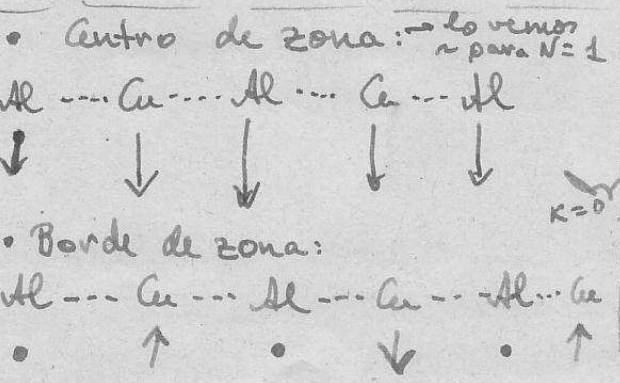 • Centro de zona: → lo vemos
~ para N=1
Al ---- Cu ---- Al ---- Cu --- Al
K=0
• Borde de zona:
Al --- Cu --- Al --- Cu -- -Al -- Cu